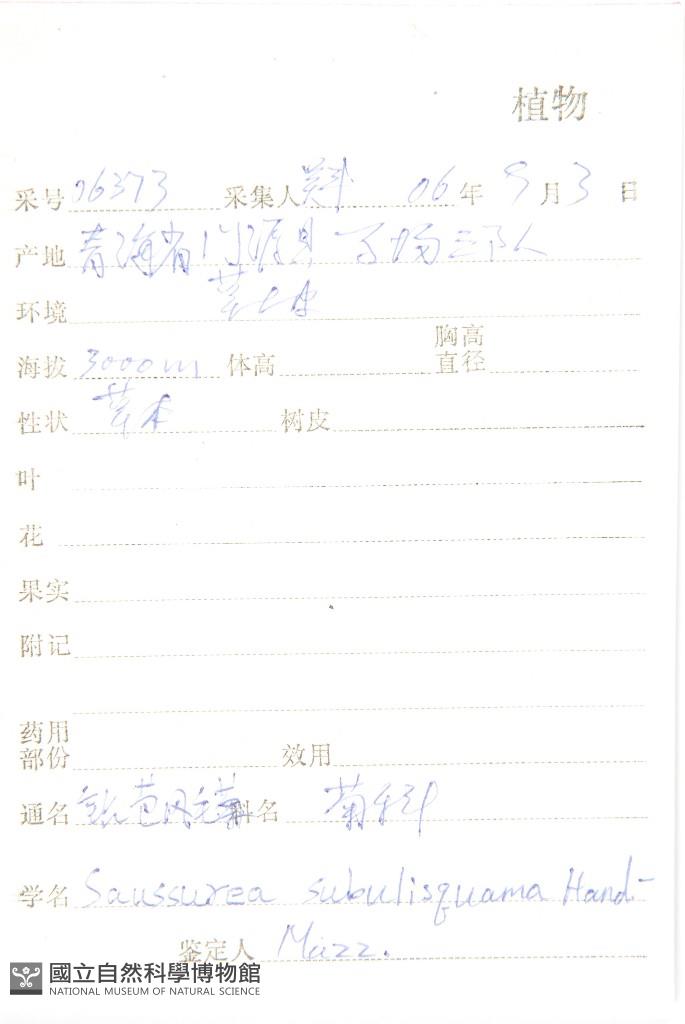 植物
采号 06373 采集人 06年 9月 3日
产地 青海省门源县 马场三队
环境
海拔 3000m 体高 胸高直径
性状 草本 树皮
叶
花
果实
附记
药用部份 效用
通名 苞风毛菊 科名 菊科
学名 Saussurea subulisquama Hand.-
鉴定人 Mazz.
國立自然科學博物館
NATIONAL MUSEUM OF NATURAL SCIENCE